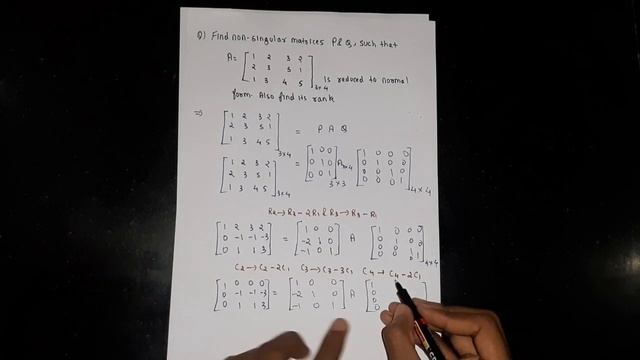 Q) Find non-singular matrices P & Q, such that
A = [ 1 2 3 2
2 3 5 1
1 3 4 5 ]3×4 is reduced to normal
form. Also find its rank
⇒ [ 1 2 3 2
2 3 5 1
1 3 4 5 ]3×4 = P A Q
[ 1 2 3 2
2 3 5 1
1 3 4 5 ]3×4 = [ 1 0 0
0 1 0
0 0 1 ]3×3 A3×4 [ 1 0 0 0
0 1 0 0
0 0 1 0
0 0 0 1 ]4×4
R2→R2-2R1 & R3→R3-R1
[ 1 2 3 2
0 -1 -1 -3
0 1 1 3 ] = [ 1 0 0
-2 1 0
-1 0 1 ] A [ 1 0 0 0
0 1 0 0
0 0 1 0
0 0 0 1 ]4×4
C2→C2-2C1 C3→C3-3C1 C4→C4-2C1
[ 1 0 0 0
0 -1 -1 -3
0 1 1 3 ] = [ 1 0 0
-2 1 0
-1 0 1 ] A [ 1
0
0
0